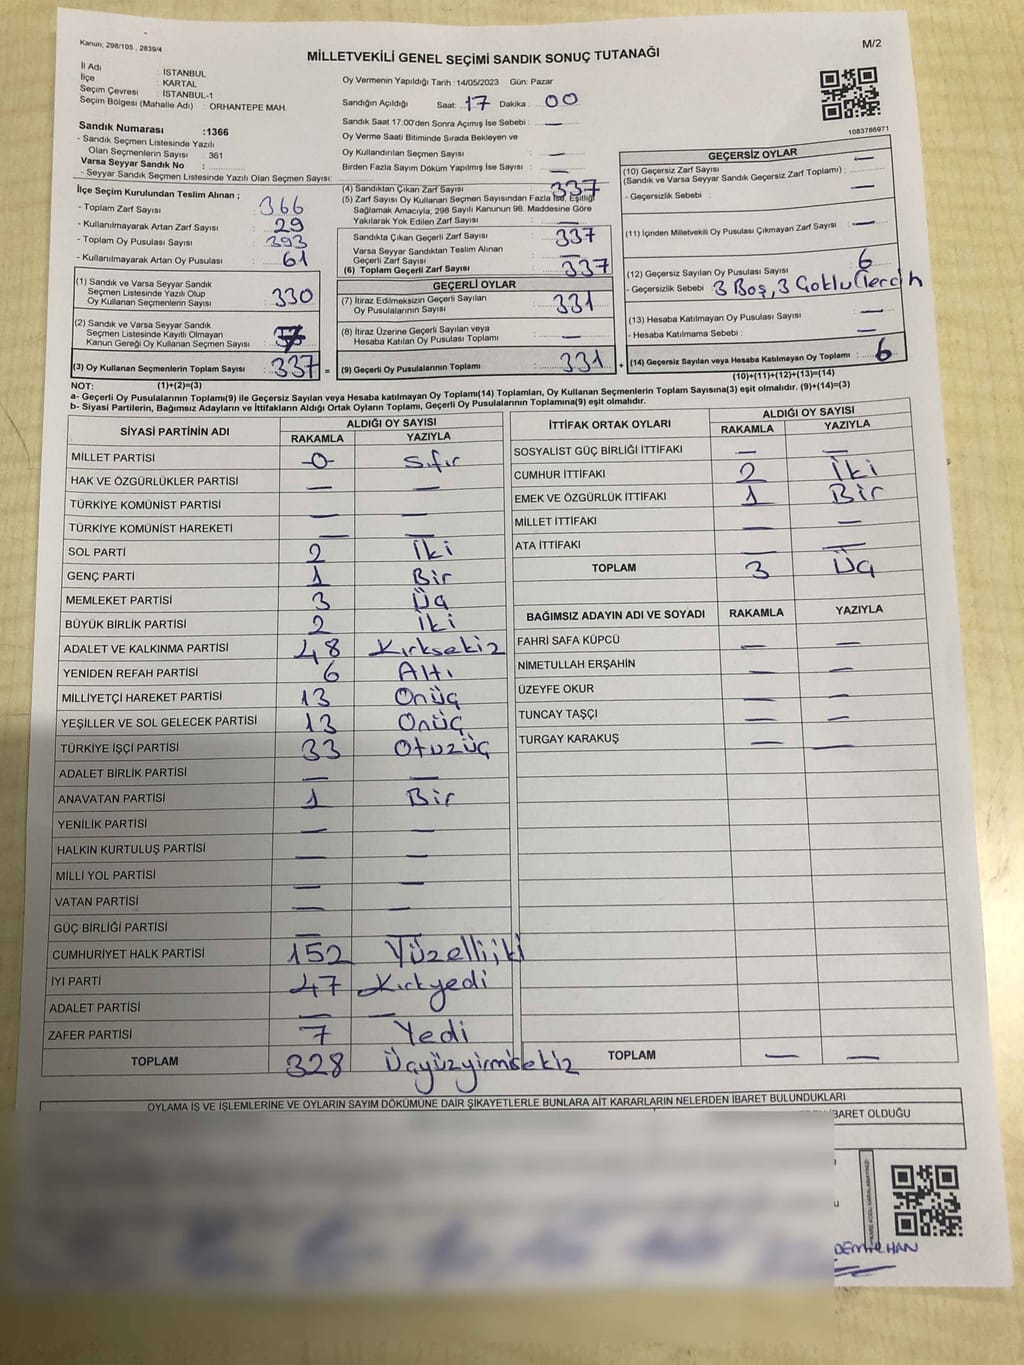 Kanun; 298/105 , 2839/4
M/2
MİLLETVEKİLİ GENEL SEÇİMİ SANDIK SONUÇ TUTANAĞI
İl Adı : İSTANBUL
İlçe : KARTAL
Seçim Çevresi : İSTANBUL-1
Seçim Bölgesi (Mahalle Adı) : ORHANTEPE MAH.
Sandık Numarası :1366
- Sandık Seçmen Listesinde Yazılı
Olan Seçmenlerin Sayısı : 361
Varsa Seyyar Sandık No :
- Seyyar Sandık Seçmen Listesinde Yazılı Olan Seçmen Sayısı:
Oy Vermenin Yapıldığı Tarih :14/05/2023 Gün: Pazar
Sandığın Açıldığı Saat: 17 Dakika : 00
Sandık Saat 17.00'den Sonra Açımış İse Sebebi : —
Oy Verme Saati Bitiminde Sırada Bekleyen ve
Oy Kullandırılan Seçmen Sayısı : —
Birden Fazla Sayım Döküm Yapılmış İse Sayısı : —
1083786971
İlçe Seçim Kurulundan Teslim Alınan ;
- Toplam Zarf Sayısı : 366
- Kullanılmayarak Artan Zarf Sayısı : 29
- Toplam Oy Pusulası Sayısı : 393
- Kullanılmayarak Artan Oy Pusulası : 61
(1) Sandık ve Varsa Seyyar Sandık
Seçmen Listesinde Yazılı Olup
Oy Kullanan Seçmenlerin Sayısı : 330
(2) Sandık ve Varsa Seyyar Sandık
Seçmen Listesinde Kayıtlı Olmayan
Kanun Gereği Oy Kullanan Seçmen Sayısı :
(3) Oy Kullanan Seçmenlerin Toplam Sayısı : 337 =
(4) Sandıktan Çıkan Zarf Sayısı : 337
(5) Zarf Sayısı Oy Kullanan Seçmen Sayısından Fazla İse, Eşitliği
Sağlamak Amacıyla; 298 Sayılı Kanunun 98. Maddesine Göre
Yakılarak Yok Edilen Zarf Sayısı : —
Sandıkta Çıkan Geçerli Zarf Sayısı : 337
Varsa Seyyar Sandıktan Teslim Alınan
Geçerli Zarf Sayısı : —
(6) Toplam Geçerli Zarf Sayısı : 337
GEÇERLİ OYLAR
(7) İtiraz Edilmeksizin Geçerli Sayılan
Oy Pusulalarının Sayısı : 331
(8) İtiraz Üzerine Geçerli Sayılan veya
Hesaba Katılan Oy Pusulaları Toplamı : —
(9) Geçerli Oy Pusulalarının Toplamı : 331 +
GEÇERSİZ OYLAR
(10) Geçersiz Zarf Sayısı : —
(Sandık ve Varsa Seyyar Sandık Geçersiz Zarf Toplamı) :
- Geçersizlik Sebebi : —
(11) İçinden Milletvekili Oy Pusulası Çıkmayan Zarf Sayısı : —
(12) Geçersiz Sayılan Oy Pusulası Sayısı : 6
- Geçersizlik Sebebi : 3 Boş, 3 Çoklu Tercih
(13) Hesaba Katılmayan Oy Pusulası Sayısı : —
- Hesaba Katılmama Sebebi : —
(14) Geçersiz Sayılan veya Hesaba Katılmayan Oy Toplamı : 6
NOT: (1)+(2)=(3) (10)+(11)+(12)+(13)=(14)
a- Geçerli Oy Pusulalarının Toplamı(9) ile Geçersiz Sayılan veya Hesaba katılmayan Oy Toplamı(14) Toplamları, Oy Kullanan Seçmenlerin Toplam Sayısına(3) eşit olmalıdır. (9)+(14)=(3)
b- Siyasi Partilerin, Bağımsız Adayların ve İttifakların Aldığı Ortak Oyların Toplamı, Geçerli Oy Pusulalarının Toplamına(9) eşit olmalıdır.
SİYASİ PARTİNİN ADI ALDIĞI OY SAYISI
RAKAMLA YAZIYLA
MİLLET PARTİSİ -0- Sıfır
HAK VE ÖZGÜRLÜKLER PARTİSİ — —
TÜRKİYE KOMÜNİST PARTİSİ — —
TÜRKİYE KOMÜNİST HAREKETİ — —
SOL PARTİ 2 İki
GENÇ PARTİ 1 Bir
MEMLEKET PARTİSİ 3 Üç
BÜYÜK BİRLİK PARTİSİ 2 İki
ADALET VE KALKINMA PARTİSİ 48 Kırksekiz
YENİDEN REFAH PARTİSİ 6 Altı
MİLLİYETÇİ HAREKET PARTİSİ 13 Onüç
YEŞİLLER VE SOL GELECEK PARTİSİ 13 Onüç
TÜRKİYE İŞÇİ PARTİSİ 33 Otuzüç
ADALET BİRLİK PARTİSİ — —
ANAVATAN PARTİSİ 1 Bir
YENİLİK PARTİSİ — —
HALKIN KURTULUŞ PARTİSİ — —
MİLLİ YOL PARTİSİ — —
VATAN PARTİSİ — —
GÜÇ BİRLİĞİ PARTİSİ — —
CUMHURİYET HALK PARTİSİ 152 Yüzelliiki
İYİ PARTİ 47 Kırkyedi
ADALET PARTİSİ — —
ZAFER PARTİSİ 7 Yedi
TOPLAM 328 Üçyüzyirmisekiz
İTTİFAK ORTAK OYLARI ALDIĞI OY SAYISI
RAKAMLA YAZIYLA
SOSYALİST GÜÇ BİRLİĞİ İTTİFAKI — —
CUMHUR İTTİFAKI 2 İki
EMEK VE ÖZGÜRLÜK İTTİFAKI 1 Bir
MİLLET İTTİFAKI — —
ATA İTTİFAKI — —
TOPLAM 3 Üç
BAĞIMSIZ ADAYIN ADI VE SOYADI RAKAMLA YAZIYLA
FAHRİ SAFA KÜPCÜ — —
NİMETULLAH ERŞAHİN — —
ÜZEYFE OKUR — —
TUNCAY TAŞÇI — —
TURGAY KARAKUŞ — —
TOPLAM — —
OYLAMA İŞ VE İŞLEMLERİNE VE OYLARIN SAYIM DÖKÜMÜNE DAİR ŞİKAYETLERLE BUNLARA AİT KARARLARIN NELERDEN İBARET BULUNDUKLARI
İBARET OLDUĞU